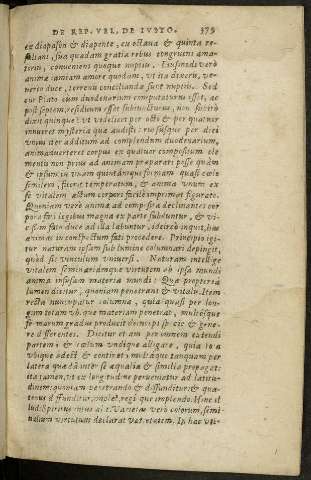 DE REP. VEL, DE IVSTO. 379
ex diapasôn & diapente, ex octaua & quinta re-
sultans, sua quadam gratia rebus congruens ama-
toriis, conueniens quoque nuptiis. Eiusmodi verò
animæ tamen amore quodam, vt ita dixerim, ve-
nerio duce, terreno conciliandæ sunt nuptiis. Sed
cur Plato cum duodenarium computaturus esset, ac
post septem, residuum esset subiuncturus, non
dixit quinque? vt videlicet per octo & per quatuor
innueret mysteria quæ audisti: rursusque per diei
vnius iter additum ad complendum duodenarium,
animaduerteret corpus ex quatuor compositum ele
mentis non prius ad animam præparari posse quàm
& ipsum in vnam quintámque formam quasi cælo
similem, fuerit temperatum, & anima vnum ex
se vitalem actum corpori facilè imprimat figurato.
Quoniam verò animæ ad composita declinantes cor
pora fati legibus magna ex parte subduntur, & vi-
cissim fato duce ad illa labuntur, idcirco inquit, has
animas in conspectum fati procedere. Principio igi-
tur naturam ipsam sub lumine columnari depingit,
quòd sit vinculum vniuersi. Naturam intellige
vitalem seminariámque virtutem ab ipsa mundi
anima infusam materiæ mundi: Quæ propterea
lumen dicitur, quoniam penetrans & vitalis. Item
rectè nuncupatur columna, quia quasi per lon-
gum totam vbique materiam penetrat, multósque
formarum gradus producit deinceps specie & gene-
re differentes. Dicitur etiam per omnem extendi
partem & cælum vndique alligare, quia tota
vbique adest & continet, multáque tanquam per
latera quædam inter se æqualia & similia propagat:
ita tamen, vt ex longitudine perueniatur ad latitu-
dinem: quoniam penetrando & diffunditur: & qua-
tenus diffunditur, implet, regitque implendo. Hinc il
lud, Spiritus intus alit. Varietas verò colorum, semi
nalium virtutum declarat varietatem. In hac vir-